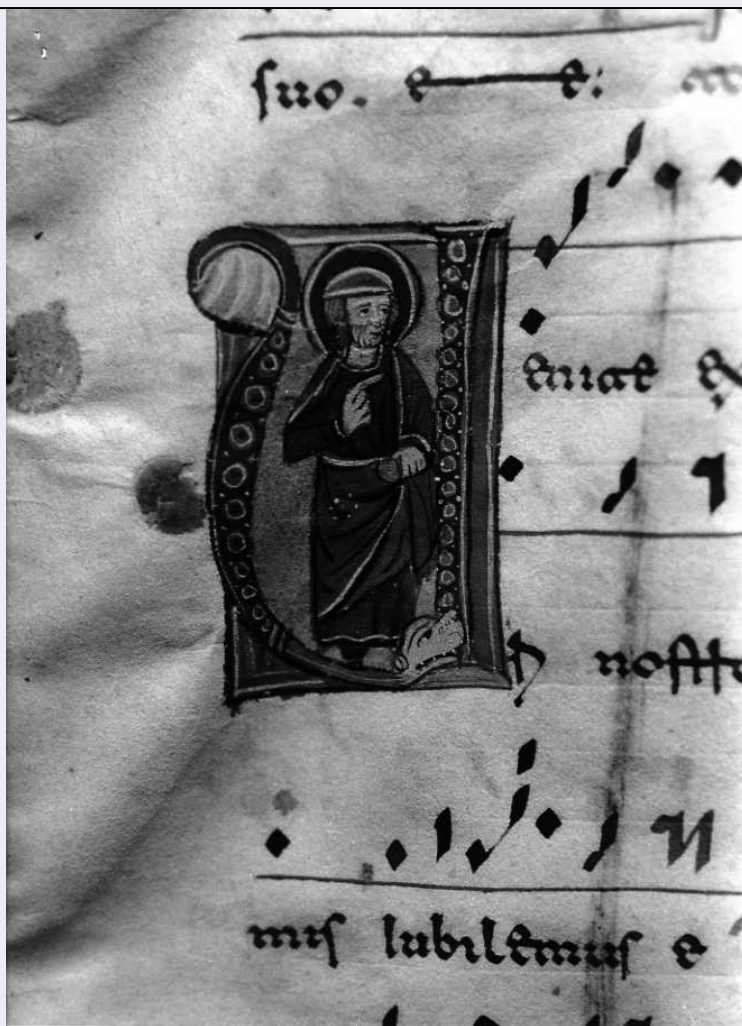 suo. e e:
Venite ex
nostr
mis iubilemus e